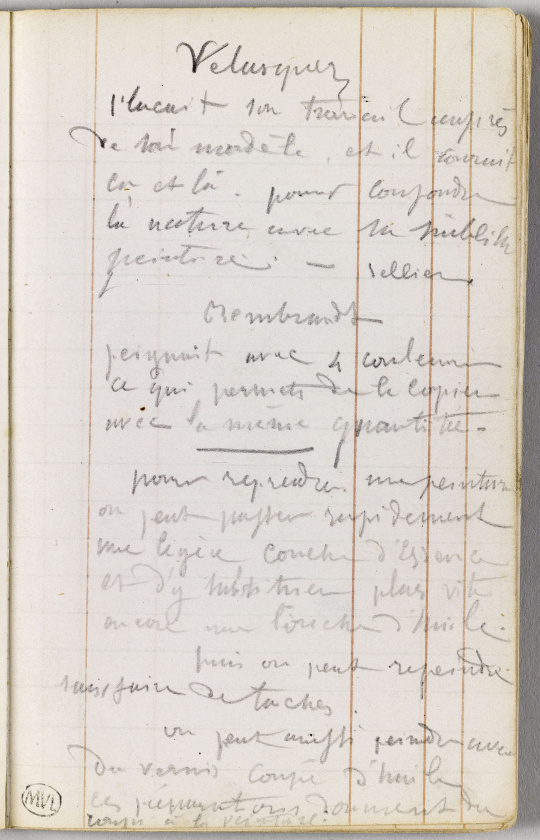 Velasquez
plaçait son travail auprès
de son modèle, et il courait
ça et là. pour confondre
la nature avec sa sublime
peinture. — Sellier
Rembrandt
peignait avec 4 couleurs
ce qui permet de le copier
avec la même quantité -
pour reprendre une peinture
on peut passer rapidement
une légère couche d'Essence
et d'y substituer plus vite
encore une couche d'huile.
puis on peut repeindre
sans faire de taches.
on peut aussi peindre avec
du vernis coupé d'huile
ces préparations donnent du
corps à la peinture.
MVL